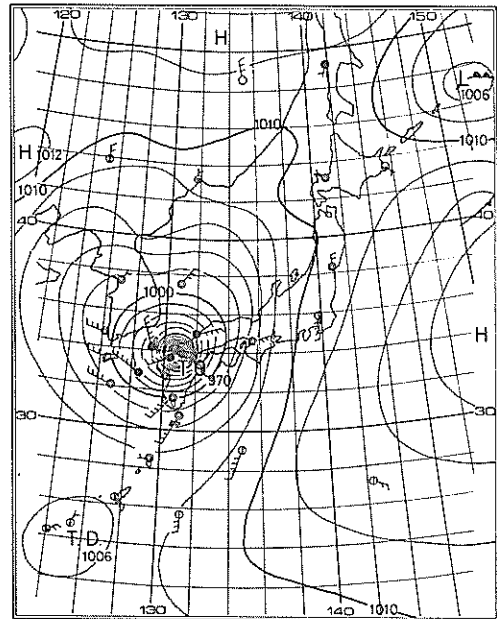 120 130 140 150
H
L
1006
1010
1010
H 1012
1010
40
40
1000
H
T
970
30
30
T.D.
1006
130 140 1010